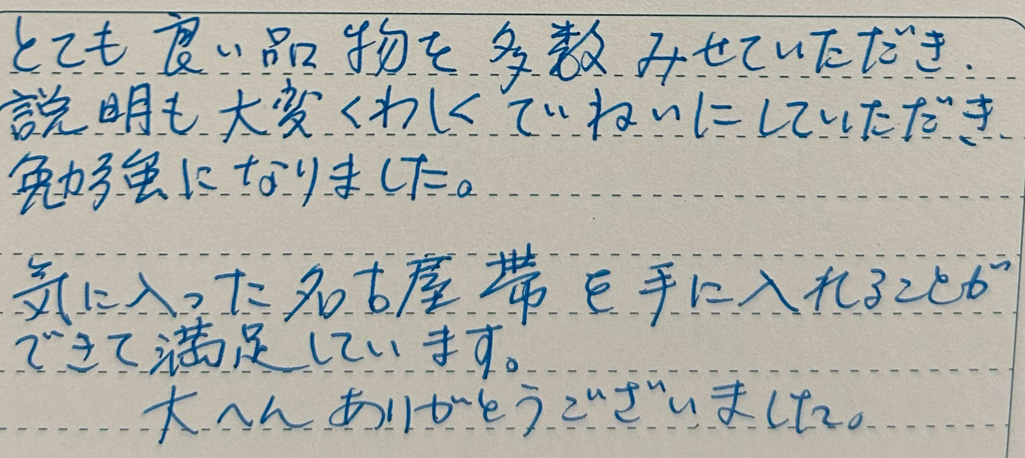 とても良い品物を多数みせていただき、
説明も大変くわしくていねいにしていただき、
勉強になりました。
気に入った名古屋帯を手に入れることが
できて満足しています。
大へんありがとうございました。